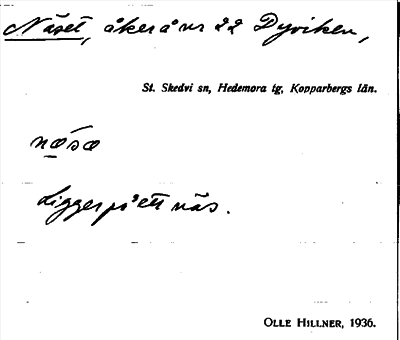 Näset, åker å nr 22 Dyviken,
St. Skedvi sn, Hedemora tg, Kopparbergs län.
næ´sæ
Ligger på ett näs.
OLLE HILLNER, 1936.